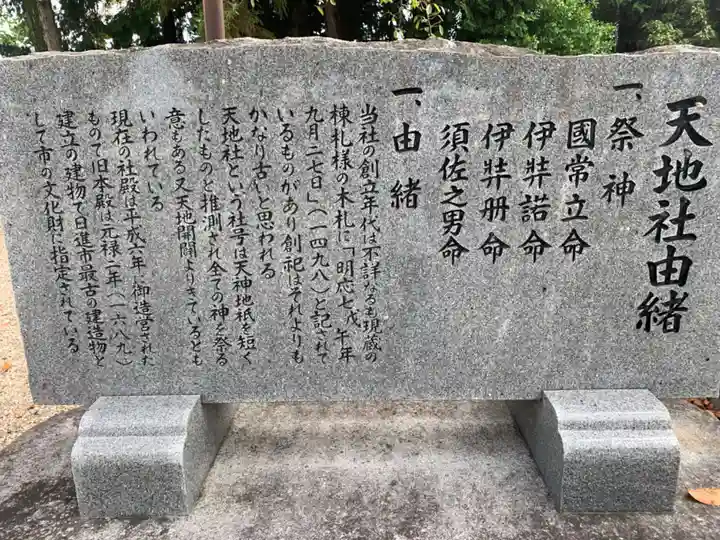 天地社由緒
一、祭神
國常立命
伊弉諾命
伊弉册命
須佐之男命
一、由緒
当社の創立年代は不詳なるも現蔵の
棟札様の木札に「明応七戊午年
九月二七日」(一四九八)と記されて
いるものがあり創祀はそれよりも
かなり古いと思われる
天地社という社号は天神地祇を短く
したものと推測され全ての神を祭る
意もある又天地開闢よりきているとも
いわれている
現在の社殿は平成六年御造営された
もので旧本殿は元禄二年(一六八九)
建立の建物で日進市最古の建造物と
して市の文化財に指定されている